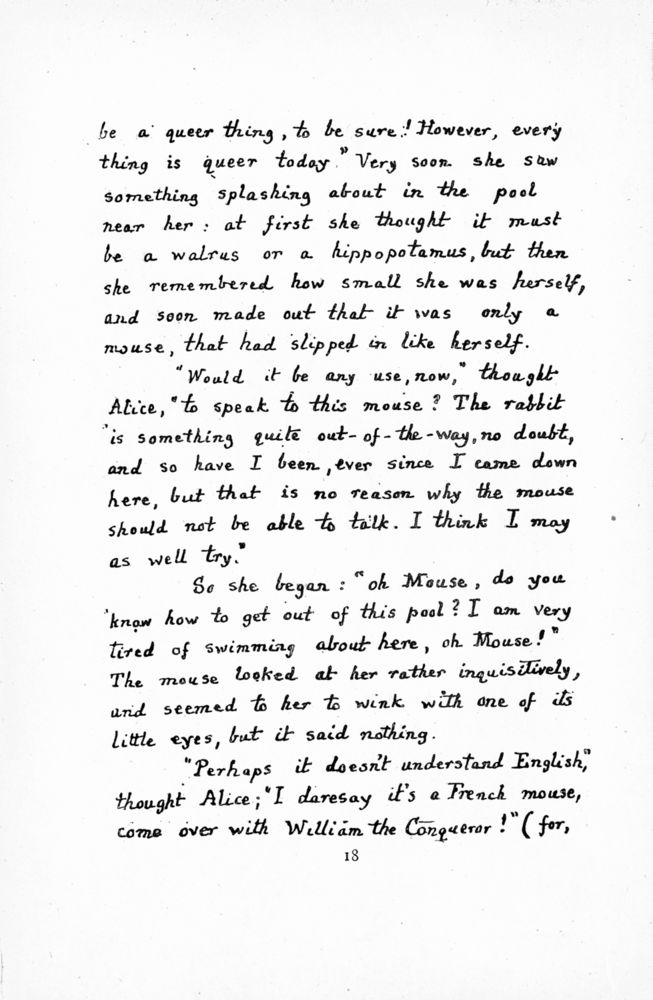 be a queer thing, to be sure! However, every
thing is queer today." Very soon she saw
something splashing about in the pool
near her: at first she thought it must
be a walrus or a hippopotamus, but then
she remembered how small she was herself,
and soon made out that it was only a
mouse, that had slipped in like herself.
"Would it be any use, now," thought
Alice, "to speak to this mouse? The rabbit
is something quite out-of-the-way, no doubt,
and so have I been, ever since I came down
here, but that is no reason why the mouse
should not be able to talk. I think I may
as well try."
So she began: "oh Mouse, do you
know how to get out of this pool? I am very
tired of swimming about here, oh Mouse!"
The mouse looked at her rather inquisitively,
and seemed to her to wink with one of its
little eyes, but it said nothing.
"Perhaps it doesn't understand English,"
thought Alice; "I daresay it's a French mouse,
come over with William the Conqueror!" (for,
18